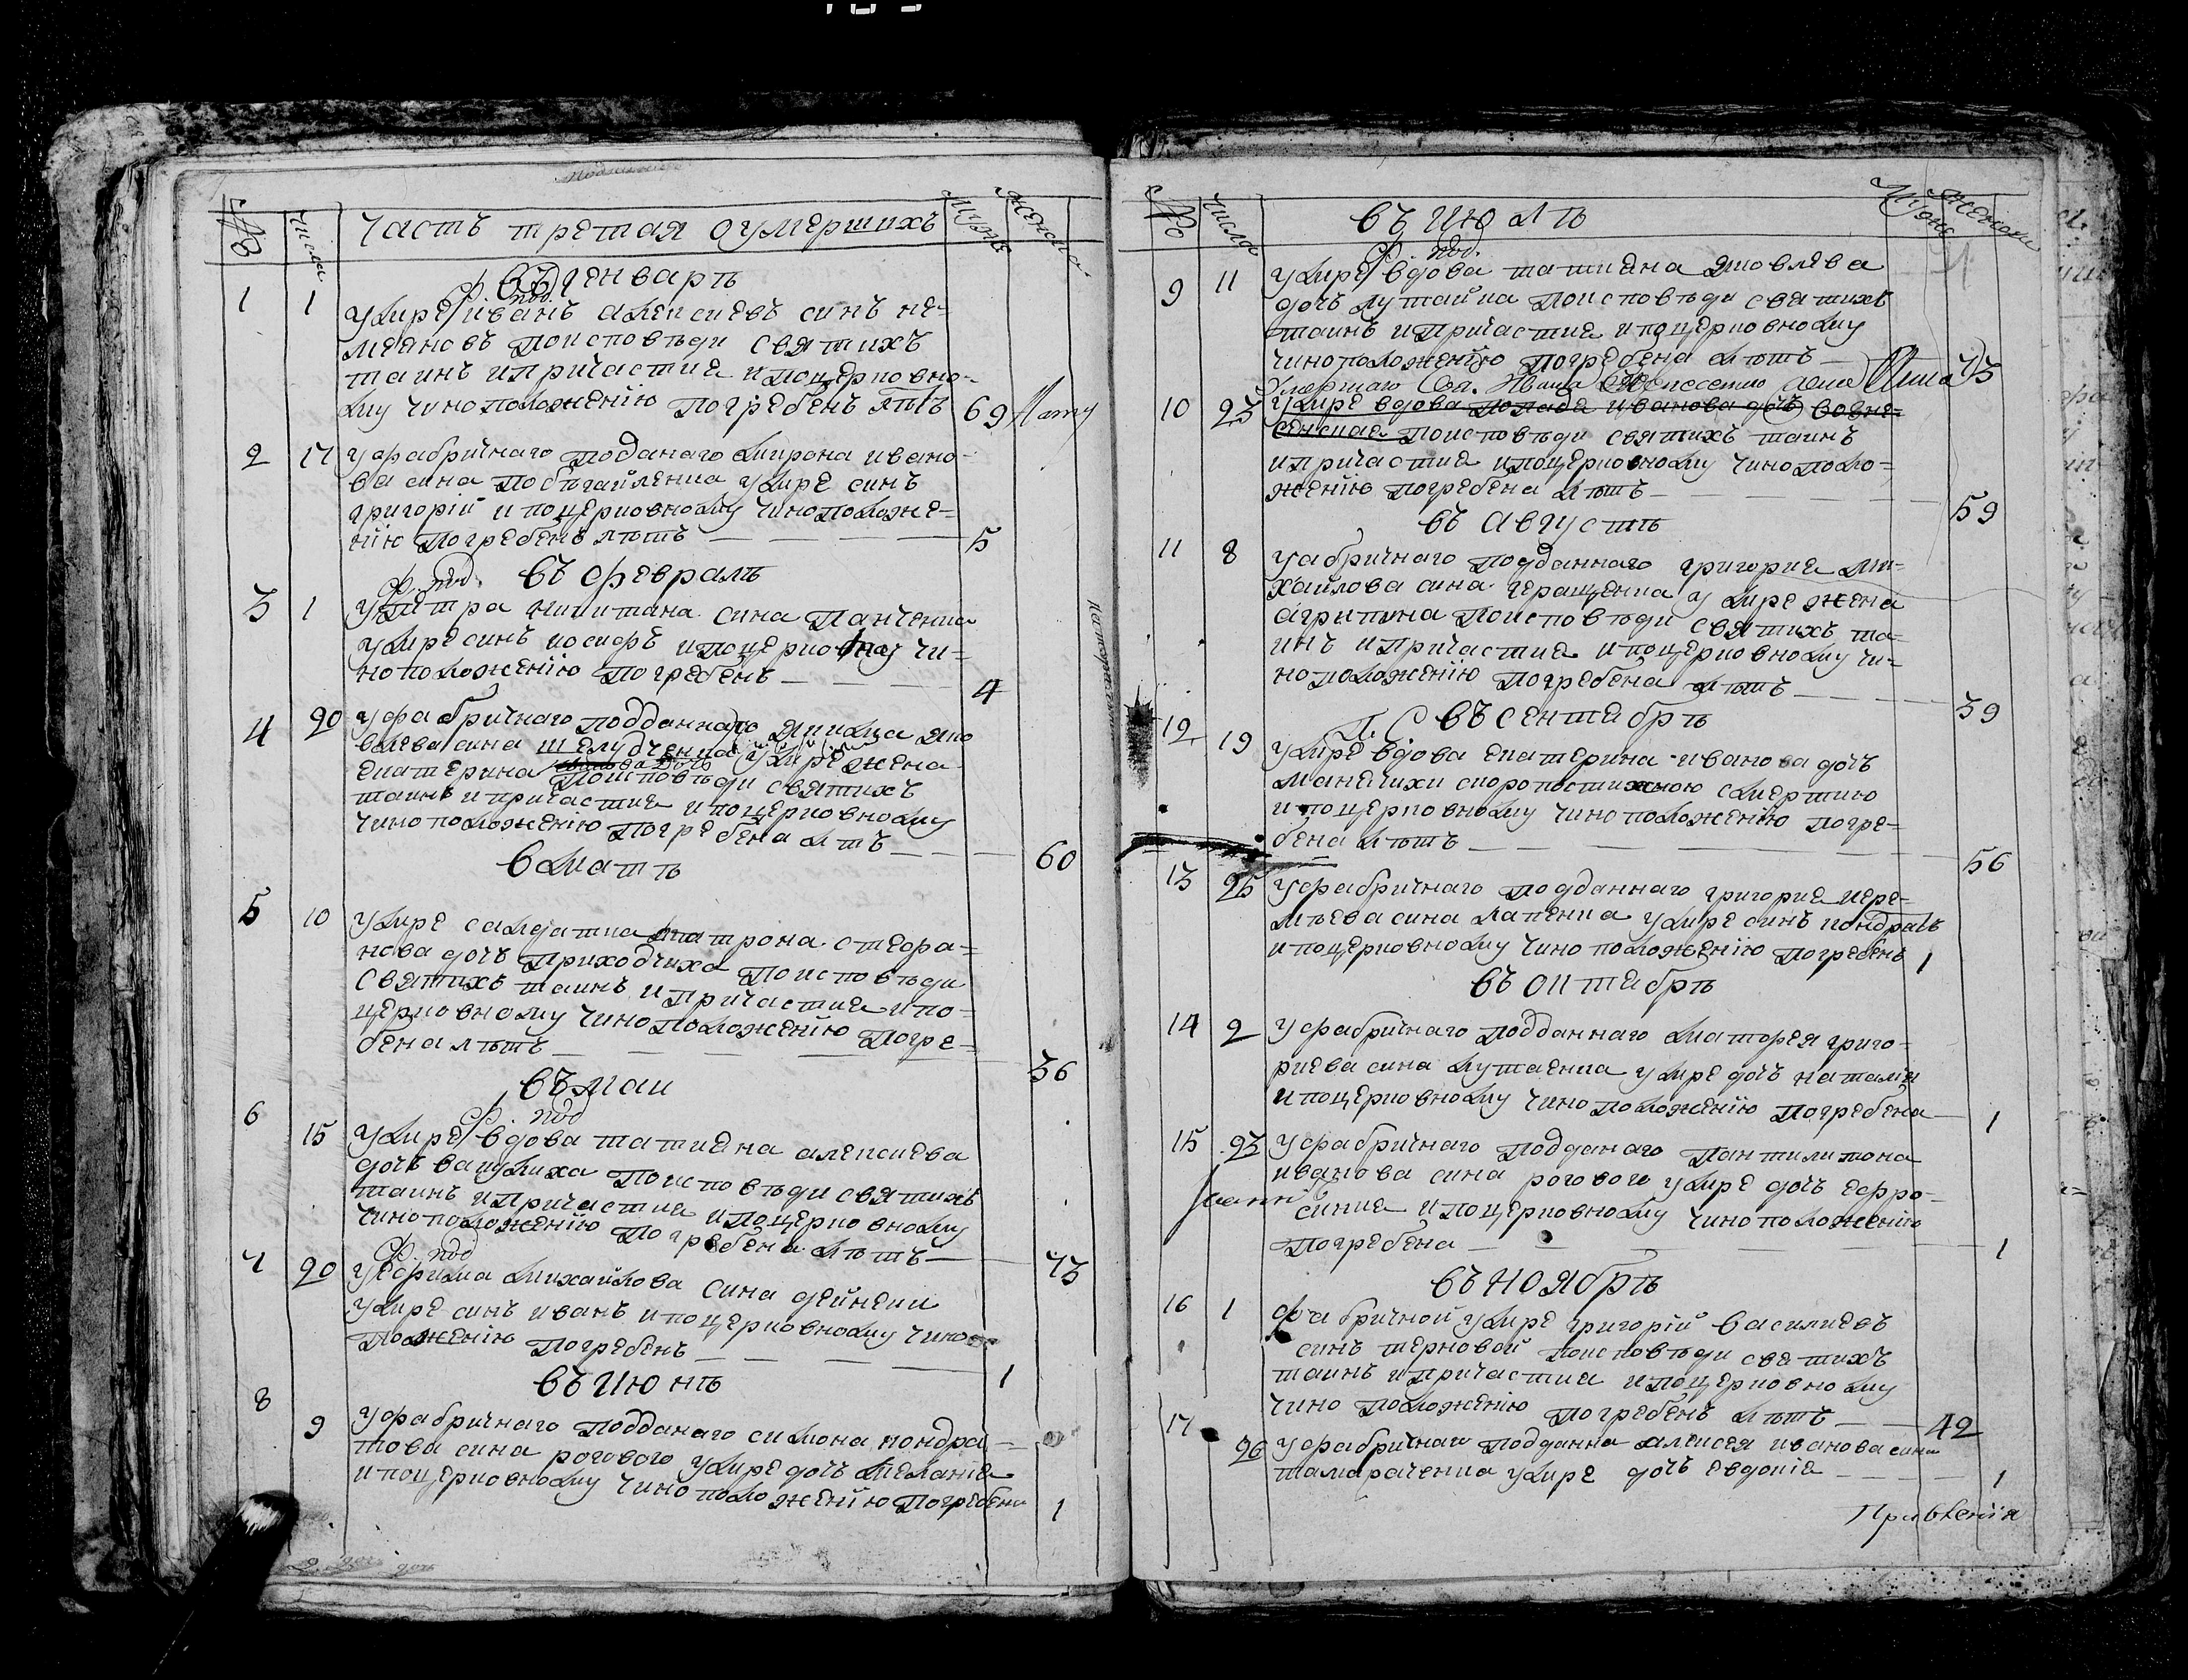 № числа Часть третая оумершихъ мужс женска
въ генварѣ
ф. под.
1 1 умре иванъ алексиевъ синъ не-
меяновъ поисповѣди святихъ
таинъ ипричастие ипоцерковно-
му чиноположенію погребенъ лѣтъ 69
2 17 уфабричнаго подданаго мирона ивано-
ва сина побѣгайленка умре синъ
григорій ипоцерковному чиноположе-
нію погребенъ лѣтъ 5
въ февралѣ
ф. под.
3 1 упетра никитина сина панченка
умре синъ иосифъ ипоцерковну чи-
ноположенію погребенъ 4
4 20 уфабричнаго подданнаго якима яко
влева сина шелудченка умре жена
екатерина поисповѣди святихъ
таинъ ипричастие ипоцерковному
чиноположенію погребена лтъ 60
вматѣ
5 10 умре салдатка матрона стефа-
нова дочъ приходчиха поисповѣди
святихъ таинъ ипричастие ипо-
церковному чиноположенію погре-
бена лѣтъ 36
въ маи
ф. под
6 15 умре вдова татияна алексиева
дочъ вакулиха поисповѣди святихъ
таинъ ипричастие ипоцерковному
чиноположенію погребена лѣтъ 73
ф. под
7 20 уефима михайлова сина дейнеки
умре синъ иванъ ипоцерковному чино
положенію погребенъ 1
въ июнѣ
8 9 уфабричнаго подданаго симона кондра-
това сина рогового умре дочъ меланія
ипоцерковному чиноположенію погребена 1
№ числа въ июлѣ мужс женски
ф. под.
9 11 умре вдова татияна яковлева
дочъ лутайка поисповѣди святихъ
таинъ ипричастие ипоцерковному
чиноположенію погребена лѣтъ 73
Умершаго Ивана жена Анна
10 23 умре вдова попадя иванова дочъ возне-
сенская поисповѣди святихъ таинъ
ипричастие ипоцерковному чинополо-
женію погребена лѣтъ 59
въ августѣ
11 8 уабричнаго подданнаго григорие ми-
хайлова сина геращенка умре жена
агрипина поисповѣди святихъ та-
инъ ипричастие ипоцерковному чи-
ноположенію погребена лѣтъ 39
П. С въ сентябрѣ
12 19 умре вдова екатерина иванова дочъ
манячихи скоропостижною смертию
ипоцерковному чиноположенію погре-
бена лѣтъ 56
13 25 уфабричнаго подданнаго григорие иере-
мѣева сина лапенка умре синъ кондратъ
ипоцерковному чиноположенію погребенъ 1
въ октябрѣ
14 2 уфабричнаго подданнаго матофея григо-
риева сина лутаенка умре дочъ наталія
ипоцерковному чиноположенію погребена 1
15 23 уфабричнаго подданаго пантилимона
иванова сина рогового умре дочъ ефро-
синия ипоцерковному чиноположенію
погребена 1
въ ноябрѣ
16 1 фабричной умре григорій василиевъ
синъ терновой поисповѣди святихъ
таинъ ипричастия ипоцерковному
чиноположенію погребенъ лѣтъ 42
17 26 уфабричнаго подданна алексея иванова сина
тамараченка умре дочъ евдокія 1